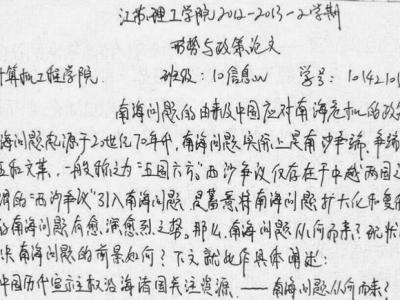 江苏理工学院2012-2013-2学期
形势与政策论文
计算机工程学院 班级:10信息W 学号:1014210
南海问题的由来及中国应对南海危机的政
海问题起源于20世纪70年代,南海问题实际上是南沙争端,争端
和文莱,一般称之为"五国六方"西沙争议仅存在于中越两国之
谓的"西沙争议"引入南海问题,是蓄意将南海问题扩大化和复
南海问题有愈演愈烈之势。那么,南海问题从何而来?现状
决南海问题的前景如何?下文就此作具体阐述:
中国历代宣示主权沿海诸国关注资源,——南海问题从何而来?